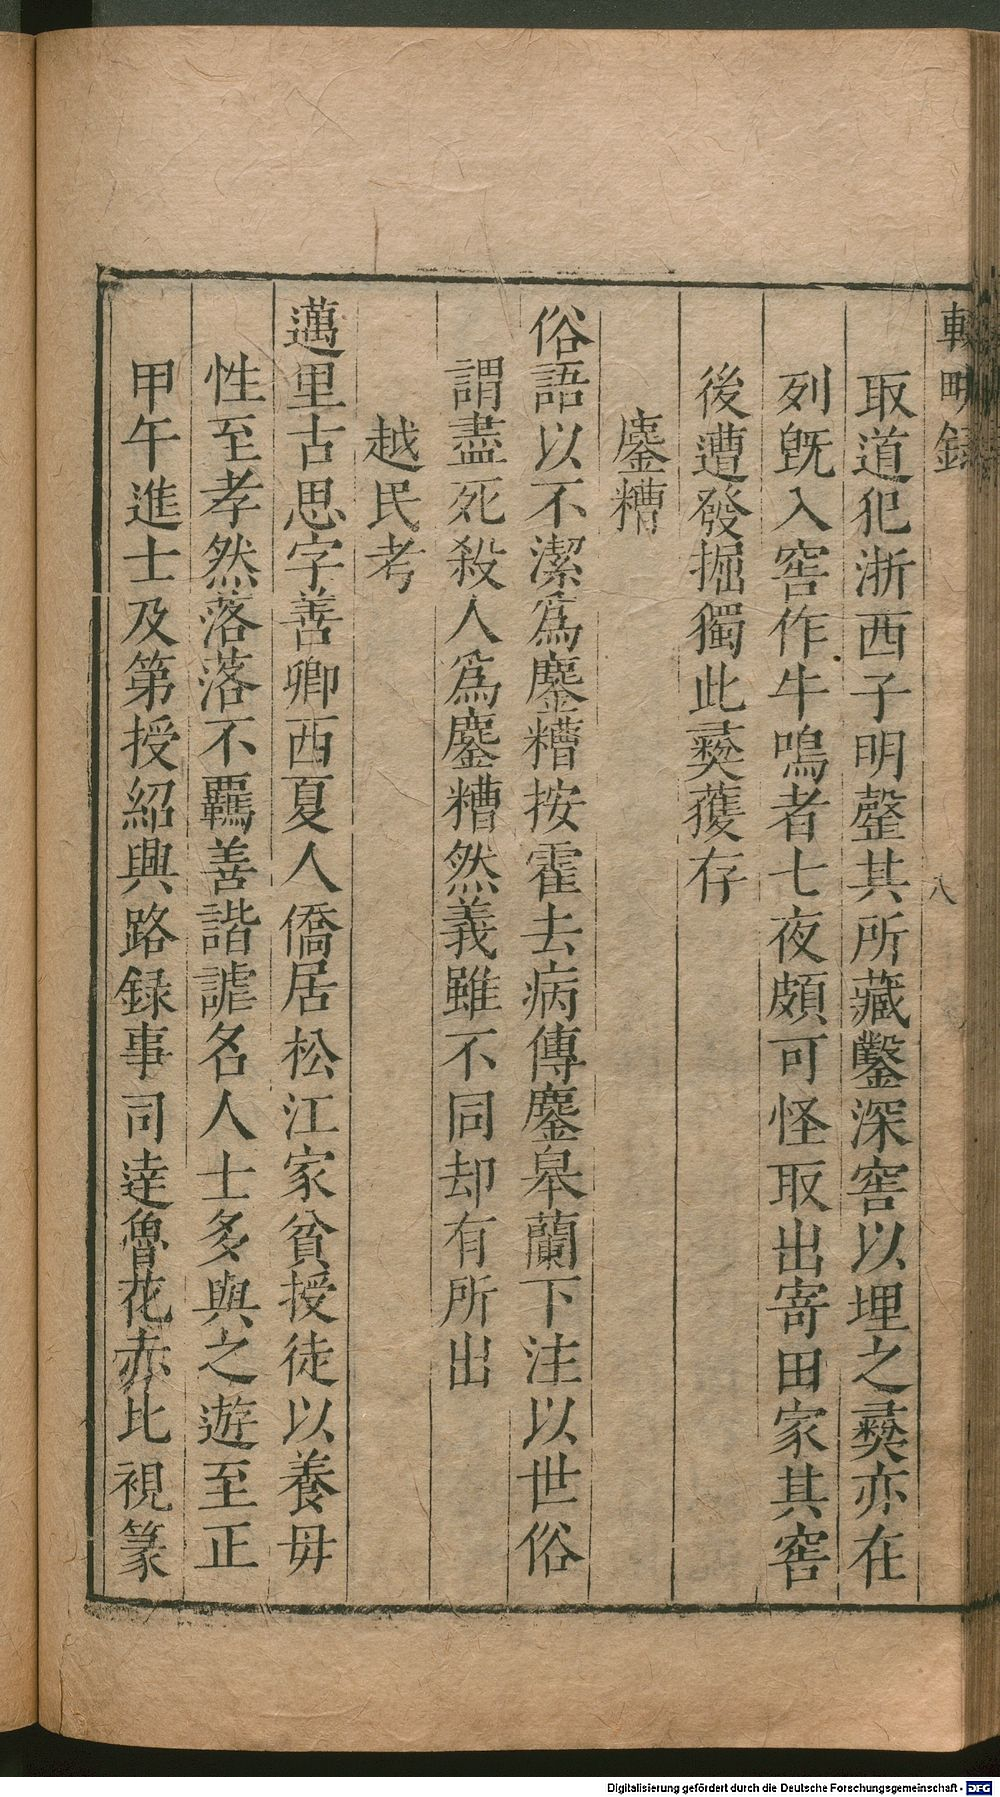 輟畊錄
八
取道犯浙西子明罄其所藏鑿深窖以埋之彛亦在
列旣入窖作牛鳴者七夜頗可怪取出寄田家其窖
後遭發掘獨此彛獲存
鏖糟
俗語以不潔爲鏖糟按霍去病傳鏖皋蘭下注以世俗
謂盡死殺人爲鏖糟然義雖不同却有所出
越民考
邁里古思字善卿西夏人僑居松江家貧授徒以養母
性至孝然落落不羈善諧謔名人士多與之遊至正
甲午進士及第授紹興路録事司達魯花赤比視篆
Digitalisierung gefördert durch die Deutsche Forschungsgemeinschaft - DFG